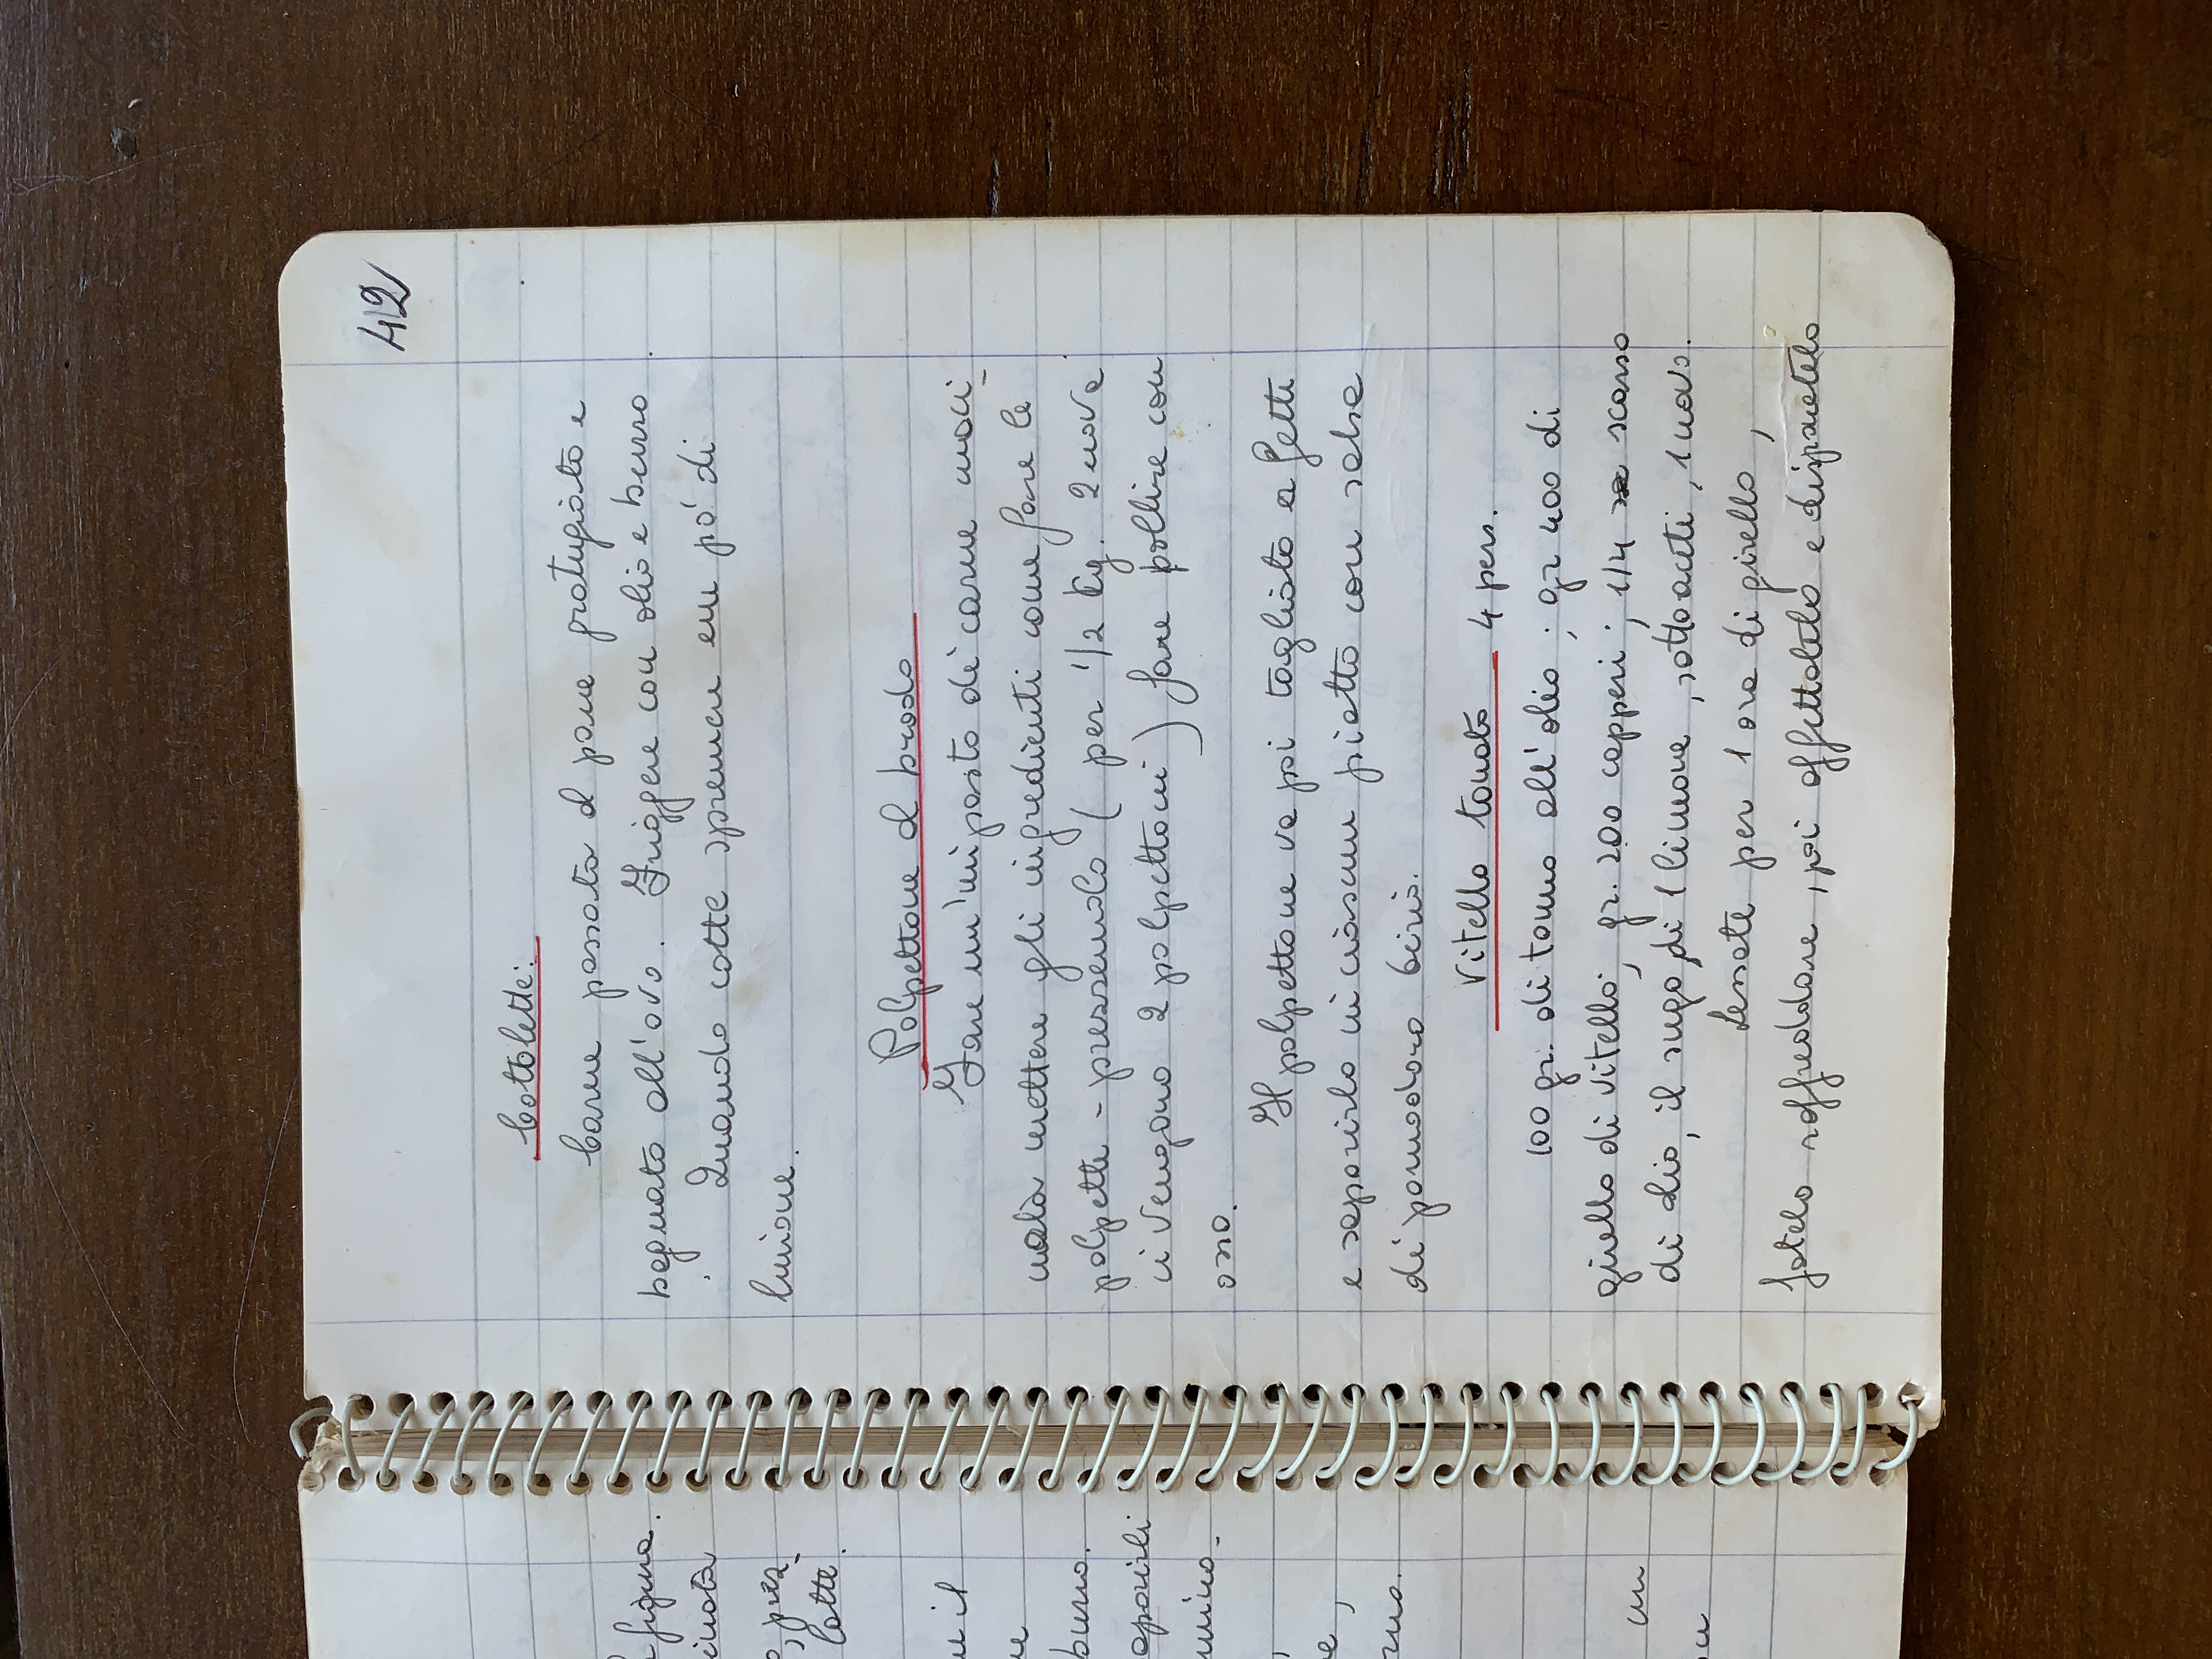 42
Cotolette:
Carne passata al pane gratugiato e
bagnato all'ovo. Friggere con olio e burro.
Quando cotte spremere un pò di
limone.
Polpettone al brodo
Fare un'imposto di carne maci-
nata mettere gli ingredienti come fare le
polpette - prezzemolo ( per 1/2 Kg. 2 uova
ci vengono 2 polpettoni ) fare bollire con
osso.
Il polpettone va poi tagliato a fette
e saporirlo in ciascun piatto con salsa
di pomodoro Cirio.
Vitello tonato 4 pers.
100 gr. di tonno all'olio ; gr 400 di
girello di vitello; gr. 200 capperi ; 1/4 scarso
di olio, il sugo di 1 limone, sottoaceti, 1 uovo.
Lessate per 1 ora di girello,
fatelo raffreddare, poi affettatelo e
figura.
, prez-
latte.
il
burro.
saporirli
un